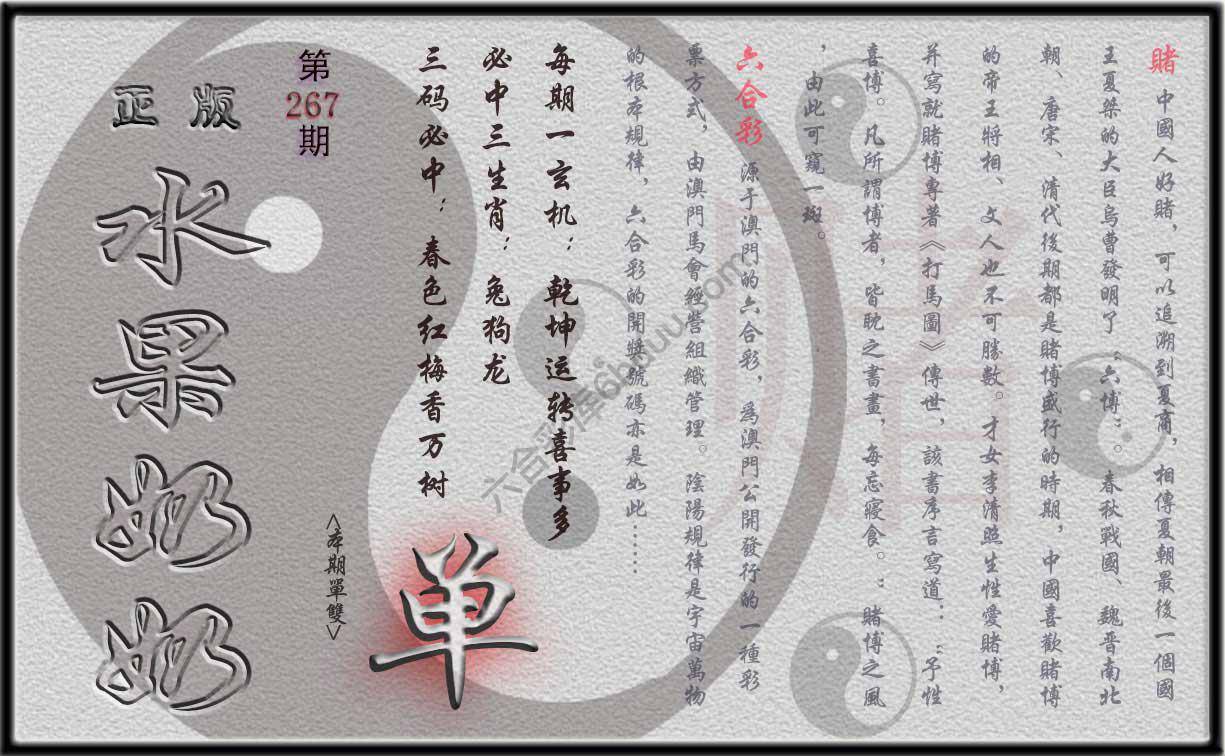 賭 中國人好賭，可以追溯到夏商，相傳夏朝最後一個國
王夏桀的大臣烏曹發明了“六博”。春秋戰國、魏晋南北
朝、唐宋、清代後期都是賭博盛行的時期，中國喜歡賭博
的帝王將相、文人也不可勝數。才女李清照生性愛賭博，
并寫就賭博專著《打馬圖》傳世，該書序言寫道：“予性
喜博。凡所謂博者，皆眈之書畫，每忘寢食。：賭博之風
，由此可窺一斑。
六合彩 源于澳門的六合彩，爲澳門公開發行的一種彩
票方式，由澳門馬會經營組織管理。陰陽規律是宇宙萬物
的根本規律，六合彩的開獎號碼亦是如此……
每期一玄机：乾坤运转喜事多
必中三生肖：兔狗龙
三码必中：春色红梅香万树
单
<本期單雙>
第
267
期
正版
水果奶奶
賭
六合彩库6hduu.com